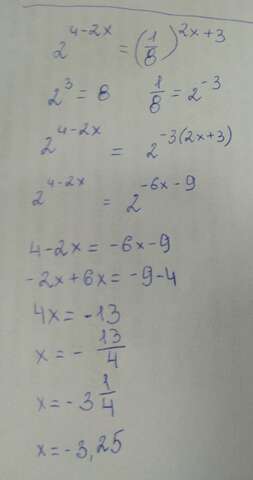 2^{4-2x} = (1/8)^{2x+3}
2^3 = 8    1/8 = 2^{-3}
2^{4-2x} = 2^{-3(2x+3)}
2^{4-2x} = 2^{-6x-9}
4-2x = -6x-9
-2x+6x = -9-4
4x = -13
x = - 13/4
x = -3 1/4
x = -3,25